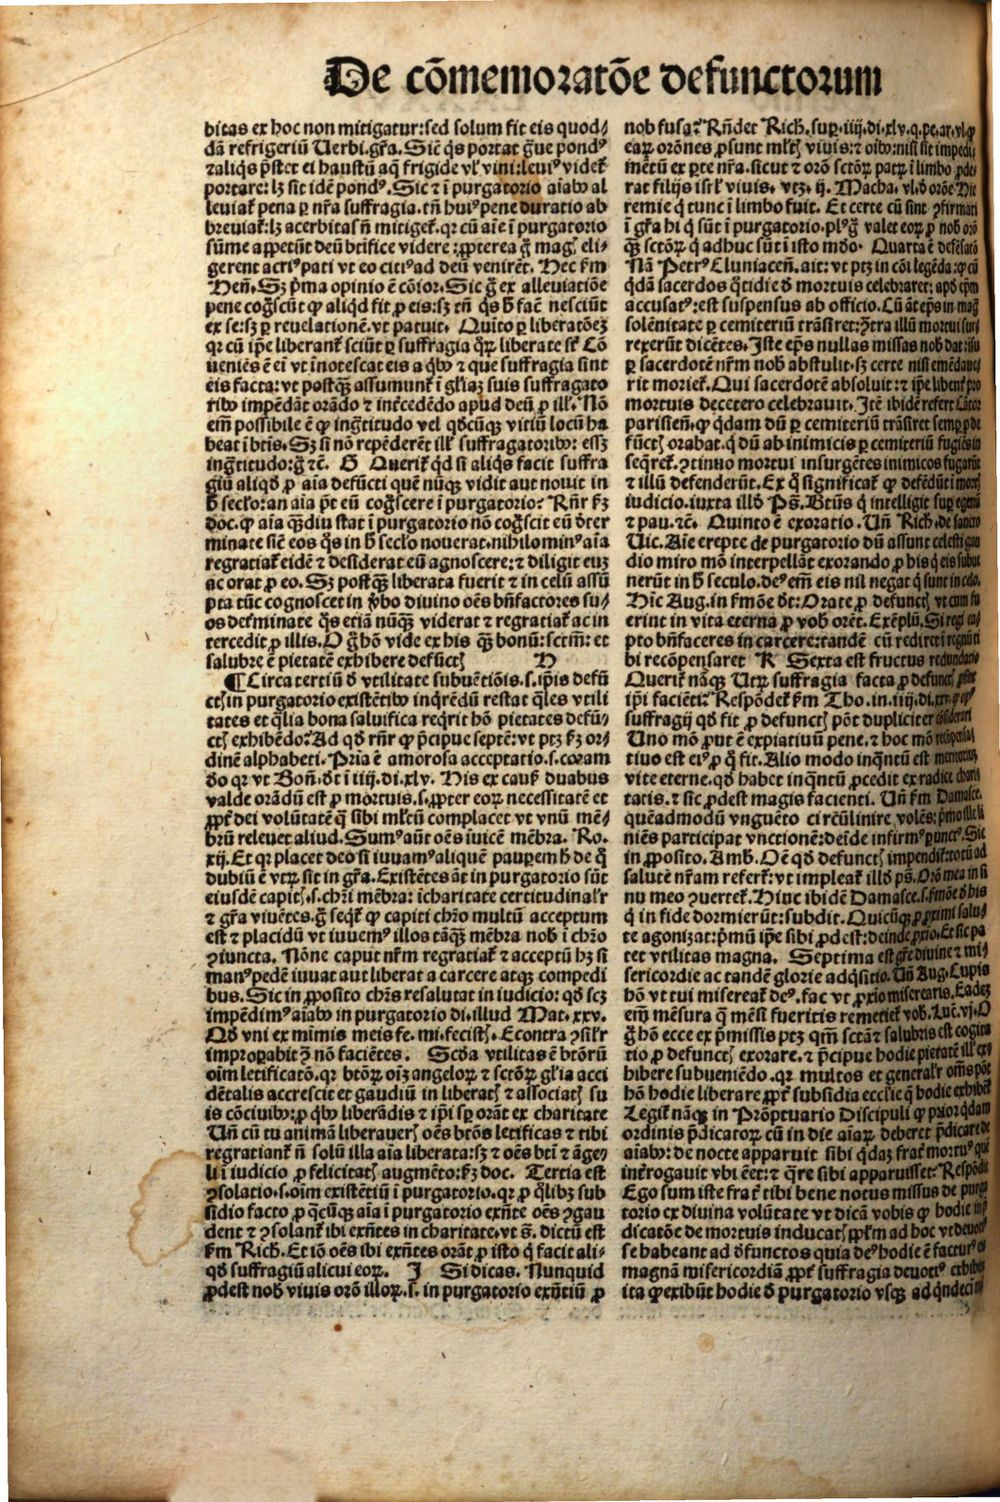 De cōmemoratōe defunctorum
bitas ex hoc non mitigatur: sed solum fit eis quod⸗
dā refrigeriū Uerbi. gr̄a. Siē q̄s portat ḡue pondꝰ
⁊ aliq̄s p̄ster ei haustū aq̄ frigide vl̓ vini: leuiꝰ videt᷑
portare: lꝫ sit idē pondꝰ. Sic ⁊ ī purgatorio aīabꝰ al
leuiat᷑ pena ꝑ nr̄a suffragia. tn̄ huiꝰ pene duratio ab
breuiat᷑: lꝫ acerbitas n̄ mitiget᷑. qꝛ cū aīe ī purgatorio
sūme appetūt deū btīfice videre: ꝓpterea ḡ magꝭ eli⸗
gerent acriꝰ pati vt eo citiꝰ ad deū venirēt. Hec ẜm
Hen̄. Sꝫ p̄ma opinio ē cōior. Sic ḡ ex alleuiatiōe
pene coḡscūt ꝙ aliq̄d fit ꝓ eis: sꝫ tn̄ q̄s h̄ fac̄ nesciūt
ex se: sꝫ ꝑ reuelationē. vt patuit. Quīto ꝑ liberatōeꝫ
qꝛ cū ip̄e liberant᷑ sciūt ꝑ suffragia qꝝ liberate st᷑ Cō
ueniēs ē eī vt īnotescat eis a qbꝰ ⁊ que suffragia sint
eis facta: vt postqꝫ assumunt᷑ ī gl̓iaꝫ suis suffragato
ribꝰ impēdāt orādo ⁊ int̄cedēdo apud deū ꝓ ill᷑. Nō
em̄ possibile ē ꝙ inḡtitudo vel qd̄cūqꝫ vitiū locū ha
beat ī btīs. Sꝫ si nō repēderēt ill᷑ suffragatoribꝰ: essꝫ
inḡtitudo: ḡ ⁊c̄. G Querit᷑ qd̄ si aliq̄s facit suffra
giū aliqd̄ ꝓ aīa defūcti quē nūqꝫ vidit aut nouit in
h̄ sec̄lo: an aīa p̄t eū coḡscere ī purgatorio? Rn̄r ẜꝫ
doc. ꝙ aīa qꝫdiu stat ī purgatorio nō coḡscit eū d̄ter
minate siē eos q̄s in h̄ sec̄lo nouerat. nihilominꝰ aīa
regratiat᷑ eidē ⁊ desiderat eū agnoscere: ⁊ diligit euꝫ
ac orat ꝓ eo. Sꝫ postqꝫ liberata fuerit ⁊ in celū assū
pta tūc cognoscet in v̓bo diuino oēs bn̄factores su⸗
os det̄minate q̄s etiā nūqꝫ viderat ⁊ regratiat᷑ ac in
tercedit ꝓ illis. O ḡ hō vide ex his qꝫ bonū: sctm̄: et
salubre ē pietatē exhibere defūctꝭ H
¶ Circa tertiū d̄ vtilitate subuētiōis. s. ip̄is defū
ctꝭ in purgatorio existētibꝰ inq̄rēdū restat q̄les vtili
tates et q̄lia bona saluifica req̄rit hō pietates defū⸗
ctꝭ exhibēdo? Ad qd̄ rn̄r ꝙ p̄cipue septē: vt ptꝫ ẜꝫ or⸗
dinē alphabeti. Pria ē amorosa acceptatio. s. coram
deo qꝛ vt Bon̄. d̄t ī iiij. di. xlv. His ex caus᷑ duabus
valde orādū est ꝓ mortuis. s. ꝓpter eoꝝ necessitatē et
ꝓpt᷑ dei volūtatē q̄ sibi ml̓tū complacet vt vnū mē⸗
brū releuet aliud. Sumꝰ aūt oēs īuicē mēbra. Ro.
xij. Et qꝛ placet deo si iuuamꝰ aliquē pauperem h̄ de q̄
dubiū ē vtꝝ sit in gr̄a. Existētes āt in purgatorio sūt
eiusdē capitꝭ. s. chr̄i mēbra: īcharitate certitudinal̓r
⁊ gr̄a viuētes. ḡ seqt᷑ ꝙ capiti chr̄o multū acceptum
est ⁊ placidū vt iuuemꝰ illos tāqꝫ mēbra nob̓ ī chr̄o
ꝯiuncta. Nōne caput nr̄m regratiat᷑ ⁊ acceptū hꝫ si
manꝰ pedē iuuat aut liberat a carcere atqꝫ compedi
bus. Sic in ꝓposito chr̄s resalutat in iudicio: qd̄ scꝫ
impēdimꝰ aīabꝰ in purgatorio di. illud Mat. xxv.
Qd̄ vni ex mīmis meis fe. mi. fecistꝭ. Econtra ꝯsil̓r
improꝑabit ꝫ nō faciētes. Scd̄a vtilitas ē btōrū
oīm letificatō. qꝛ btōꝝ oīꝫ angeloꝝ ⁊ sctōꝝ gl̓ia acci
dētalis accrescit et gaudiū in liberatꝭ ⁊ associatꝭ su
is cōciuibꝰ: ꝓ qbꝰ liberādis ⁊ ip̄i sꝑ orāt ex charitate
Un̄ cū tu animā liberauerꝭ oēs btōs letificas ⁊ tibi
regratiant᷑ n̄ solū illa aīa liberata: sꝫ ⁊ oēs btī ⁊ āge⸗
li ī iudicio ꝓ felicitatꝭ augmēto: ẜꝫ doc. Tertia est
ꝯsolatio. s. oīm existētiū ī purgatorio. qꝛ ꝓ q̄libꝫ sub
sidio facto ꝓ q̄cūqꝫ aīa ī purgatorio exn̄te oēs ꝯgau
dent ⁊ ꝯsolant᷑ ibi exn̄tes in charitate. vt s̄. dictū est
ẜm Rich. Et iō oēs ibi exn̄tes orāt ꝓ isto q̄ facit ali⸗
qd̄ suffragiū alicui eoꝝ. I Si dicas. Nunquid
ꝓdest nob̓ viuis orō illoꝝ. s. in purgatorio exn̄tiū ꝓ
nob̓ fusa? Rn̄det Rich. sup. iiij. di. xlv. q. pe. ar.
eaꝝ orōnes ꝓsunt ml̓tꝭ viuis: ⁊ oībꝰ: nisi sit impedi
mētū ex ꝑte nr̄a. sicut ⁊ orō sctōꝝ patꝝ ī limbo ꝓde
rat filijs isrl̓ viuis. vtꝫ. ij. Macha. vl̓. d̄ orōe Hie
remie q̄ tunc ī limbo fuit. Et certe cū sint ꝯfirmati
ī gr̄a hi q̄ sūt ī purgatorio. plꝰ ḡ valet eoꝝ ꝓ nob̓ orō
qꝫ sctōꝝ q̄ adhuc sūt ī isto mūdo. Quarta ē defēsatō
Nā Petrꝰ Cluniacen̄. ait: vt ptꝫ in cōi legēda: ꝙ cū
q̄dā sacerdos q̄tidie d̄ mortuis celebraret: apd̄ ep̄m
accusatꝰ: est suspensus ab officio. Cū āt ep̄s in maḡ
solēnitate ꝑ cemiteriū trāsiret: ꝯtra illū mortui sur⸗
rexerūt dicētes. Iste ep̄s nullas missas nob̓ dat: isu
ꝑ sacerdotē nr̄m nob̓ abstulit. sꝫ certe nisi emēdaue
rit moriet᷑. Qui sacerdotē absoluit: ⁊ ip̄e libent᷑ pro
mortuis decetero celebrauit. Itē ibidē refert Cātor
parisien̄. ꝙ q̄dam dū ꝑ cemiteriū trāsiret semꝑ ꝓ de
fūctꝭ orabat. q̄ dū ab inimicis ꝑ cemiteriū fugiēs in
seq̄ret᷑. ꝯtinuo mortui insurgētes inimicos fugarūt
⁊ illū defenderūt. Ex q̄ significat᷑ ꝙ defēdūt ī mortꝭ
iudicio. iuxta illd̄ Ps̄. Btūs q̄ intelligit suꝑ egenū
⁊ pau. ⁊c̄. Quinto ē exoratio. Un̄ Rich. de sancto
Uic. Aīe erepte de purgatorio dū assunt celesti gau
dio miro mō interpellāt exorando ꝓ his q̄ eis subue
nerūt in h̄ seculo. deꝰ em̄ eis nil negat q̄ sunt in celo.
Hīc Aug. in ẜmōe d̄t: Orate ꝓ defunctꝭ vt cum fu
erint in vita eterna ꝓ vob̓ orēt. Exēplū. Si regi ca⸗
pto bn̄faceres in carcere: tandē cū rediret ī regnū ti
bi recōpensaret K Sexta est fructus redundatio
Querit᷑ nāqꝫ Utꝝ suffragia facta ꝓ defunctꝭ ꝓsint
ip̄i faciēti? Respōdet᷑ ẜm Tho. in. iiij. di. xxv. ꝙ opꝰ
suffragij qd̄ fit ꝓ defunctꝭ pōt dupliciter cōsiderari
Uno mō ꝓut ē expiatiuū pene. ⁊ hoc mō recōpensa
tiuo est eiꝰ ꝓ q̄ fit. Alio modo inq̄ntū est meritoriū
vite eterne. qd̄ habet inq̄ntū ꝓcedit ex radice chari
tatis. ⁊ sic ꝓdest magis facienti. Un̄ ẜm Damasce.
quēadmodū vnguēto circūlinire volēs: p̄mo ille li
niēs participat vnctionē: deīde infirmꝰ ꝑunctꝰ. Sic
in ꝓposito. Amb. Oē qd̄ defunctꝭ impendit᷑: totū ad
salutē nr̄am refert᷑: vt impleat᷑ illd̄ ps̄. Orō mea in si
nu meo ꝯuertet᷑. Hinc ibidē Damasce. s. ẜmōe d̄ his
q̄ in fide dormierūt: subdit. Quicūqꝫ ꝓ ꝓximi salu⸗
te agonizat: p̄mū ip̄e sibi ꝓdest: deinde ꝓxīo. Et sic pa
tet vtilitas magna. Septima est gr̄e diuine ⁊ mi⸗
sericordie ac tandē glorie adq̄sitio. Un̄ Aug. Cupis
hō vt tui misereat᷑ deꝰ. fac vt ꝓxīo miserearis. Eadeꝫ
em̄ mēsura q̄ mēsi fueritis remetiet᷑ vob̓. Luc̄. vj. O
ḡ hō ecce ex p̄missis ptꝫ qm̄ sctā ⁊ salubris est cogita
tio ꝓ defunctꝭ exorare. ⁊ p̄cipue hodie pietatē ill᷑ ex⸗
hibere subueniēdo. qꝛ multos et general̓r om̄s pōt
hō hodie liberare ꝓpt᷑ subsidia eccl̓ie q̄ hodie exhibēt᷑
Legit᷑ nāqꝫ in Prōptuario Discipuli ꝙ prior q̄dam
ordinis p̄dicatoꝝ cū in die aīaꝝ deberet p̄dicari de
aīabꝰ: de nocte apparuit sibi q̄daꝫ frat᷑ mortuꝰ qui
int̄rogauit vbi ēet: ⁊ q̄re sibi apparuisset? Respōdit
Ego sum iste frat᷑ tibi bene notus missus de purga
torio ex diuina volūtate vt dicā vobis ꝙ hodie in p̄
dicatōe de mortuis inducatꝭ ppl̓m ad hoc vt deuote
se habeant ad d̄functos quia deꝰ hodie ē facturꝰ eis
magnā misericordiā ꝓpt᷑ suffragia deuotiꝰ exhibita
ita ꝙ exibūt hodie d̄ purgatorio vsqꝫ ad q̄ndeci